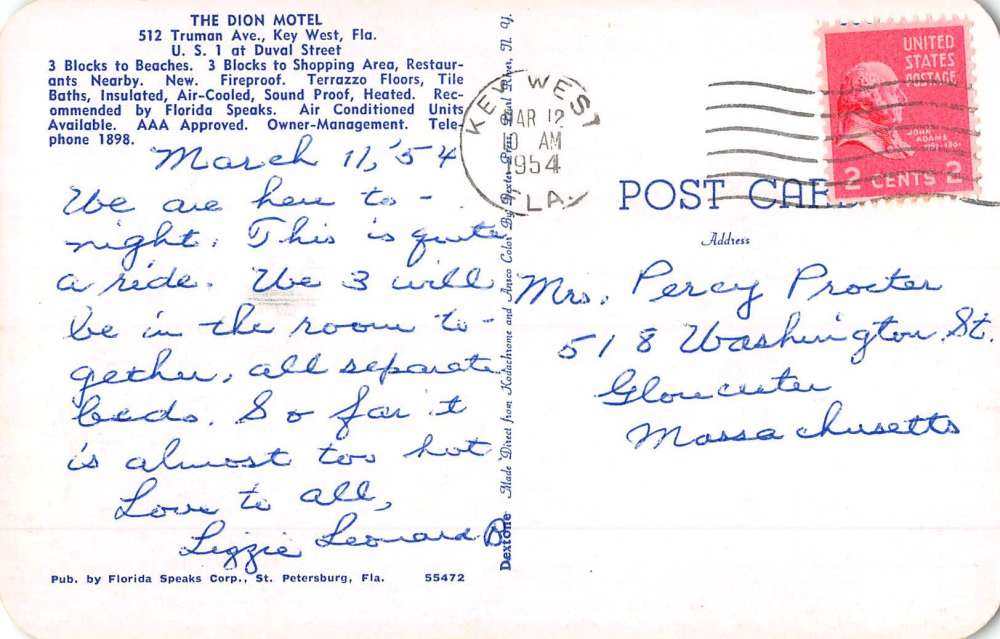 THE DION MOTEL
512 Truman Ave., Key West, Fla.
U. S. 1 at Duval Street
3 Blocks to Beaches. 3 Blocks to Shopping Area, Restaur-
ants Nearby. New. Fireproof. Terrazzo Floors, Tile
Baths, Insulated, Air-Cooled, Sound Proof, Heated. Rec-
ommended by Florida Speaks. Air Conditioned Units
Available. AAA Approved. Owner-Management. Tele-
phone 1898.
March 11, '54
We are here to-
night. This is quite
a ride. We 3 will
be in the room to-
gether, all separate
beds. So far it
is almost too hot
Love to all,
Lizzie Leonard B
Pub. by Florida Speaks Corp., St. Petersburg, Fla. 55472
Dextone Made Direct from Kodachrome and Ansco Color By Dexter Press, Pearl River, N. Y.
KEY WEST
MAR 12
10 AM
1954
FLA.
UNITED
STATES
POSTAGE
JOHN
ADAMS
2 CENTS 2
POST CARD
Address
Mrs. Percy Procter
518 Washington St.
Gloucester
Massachusetts